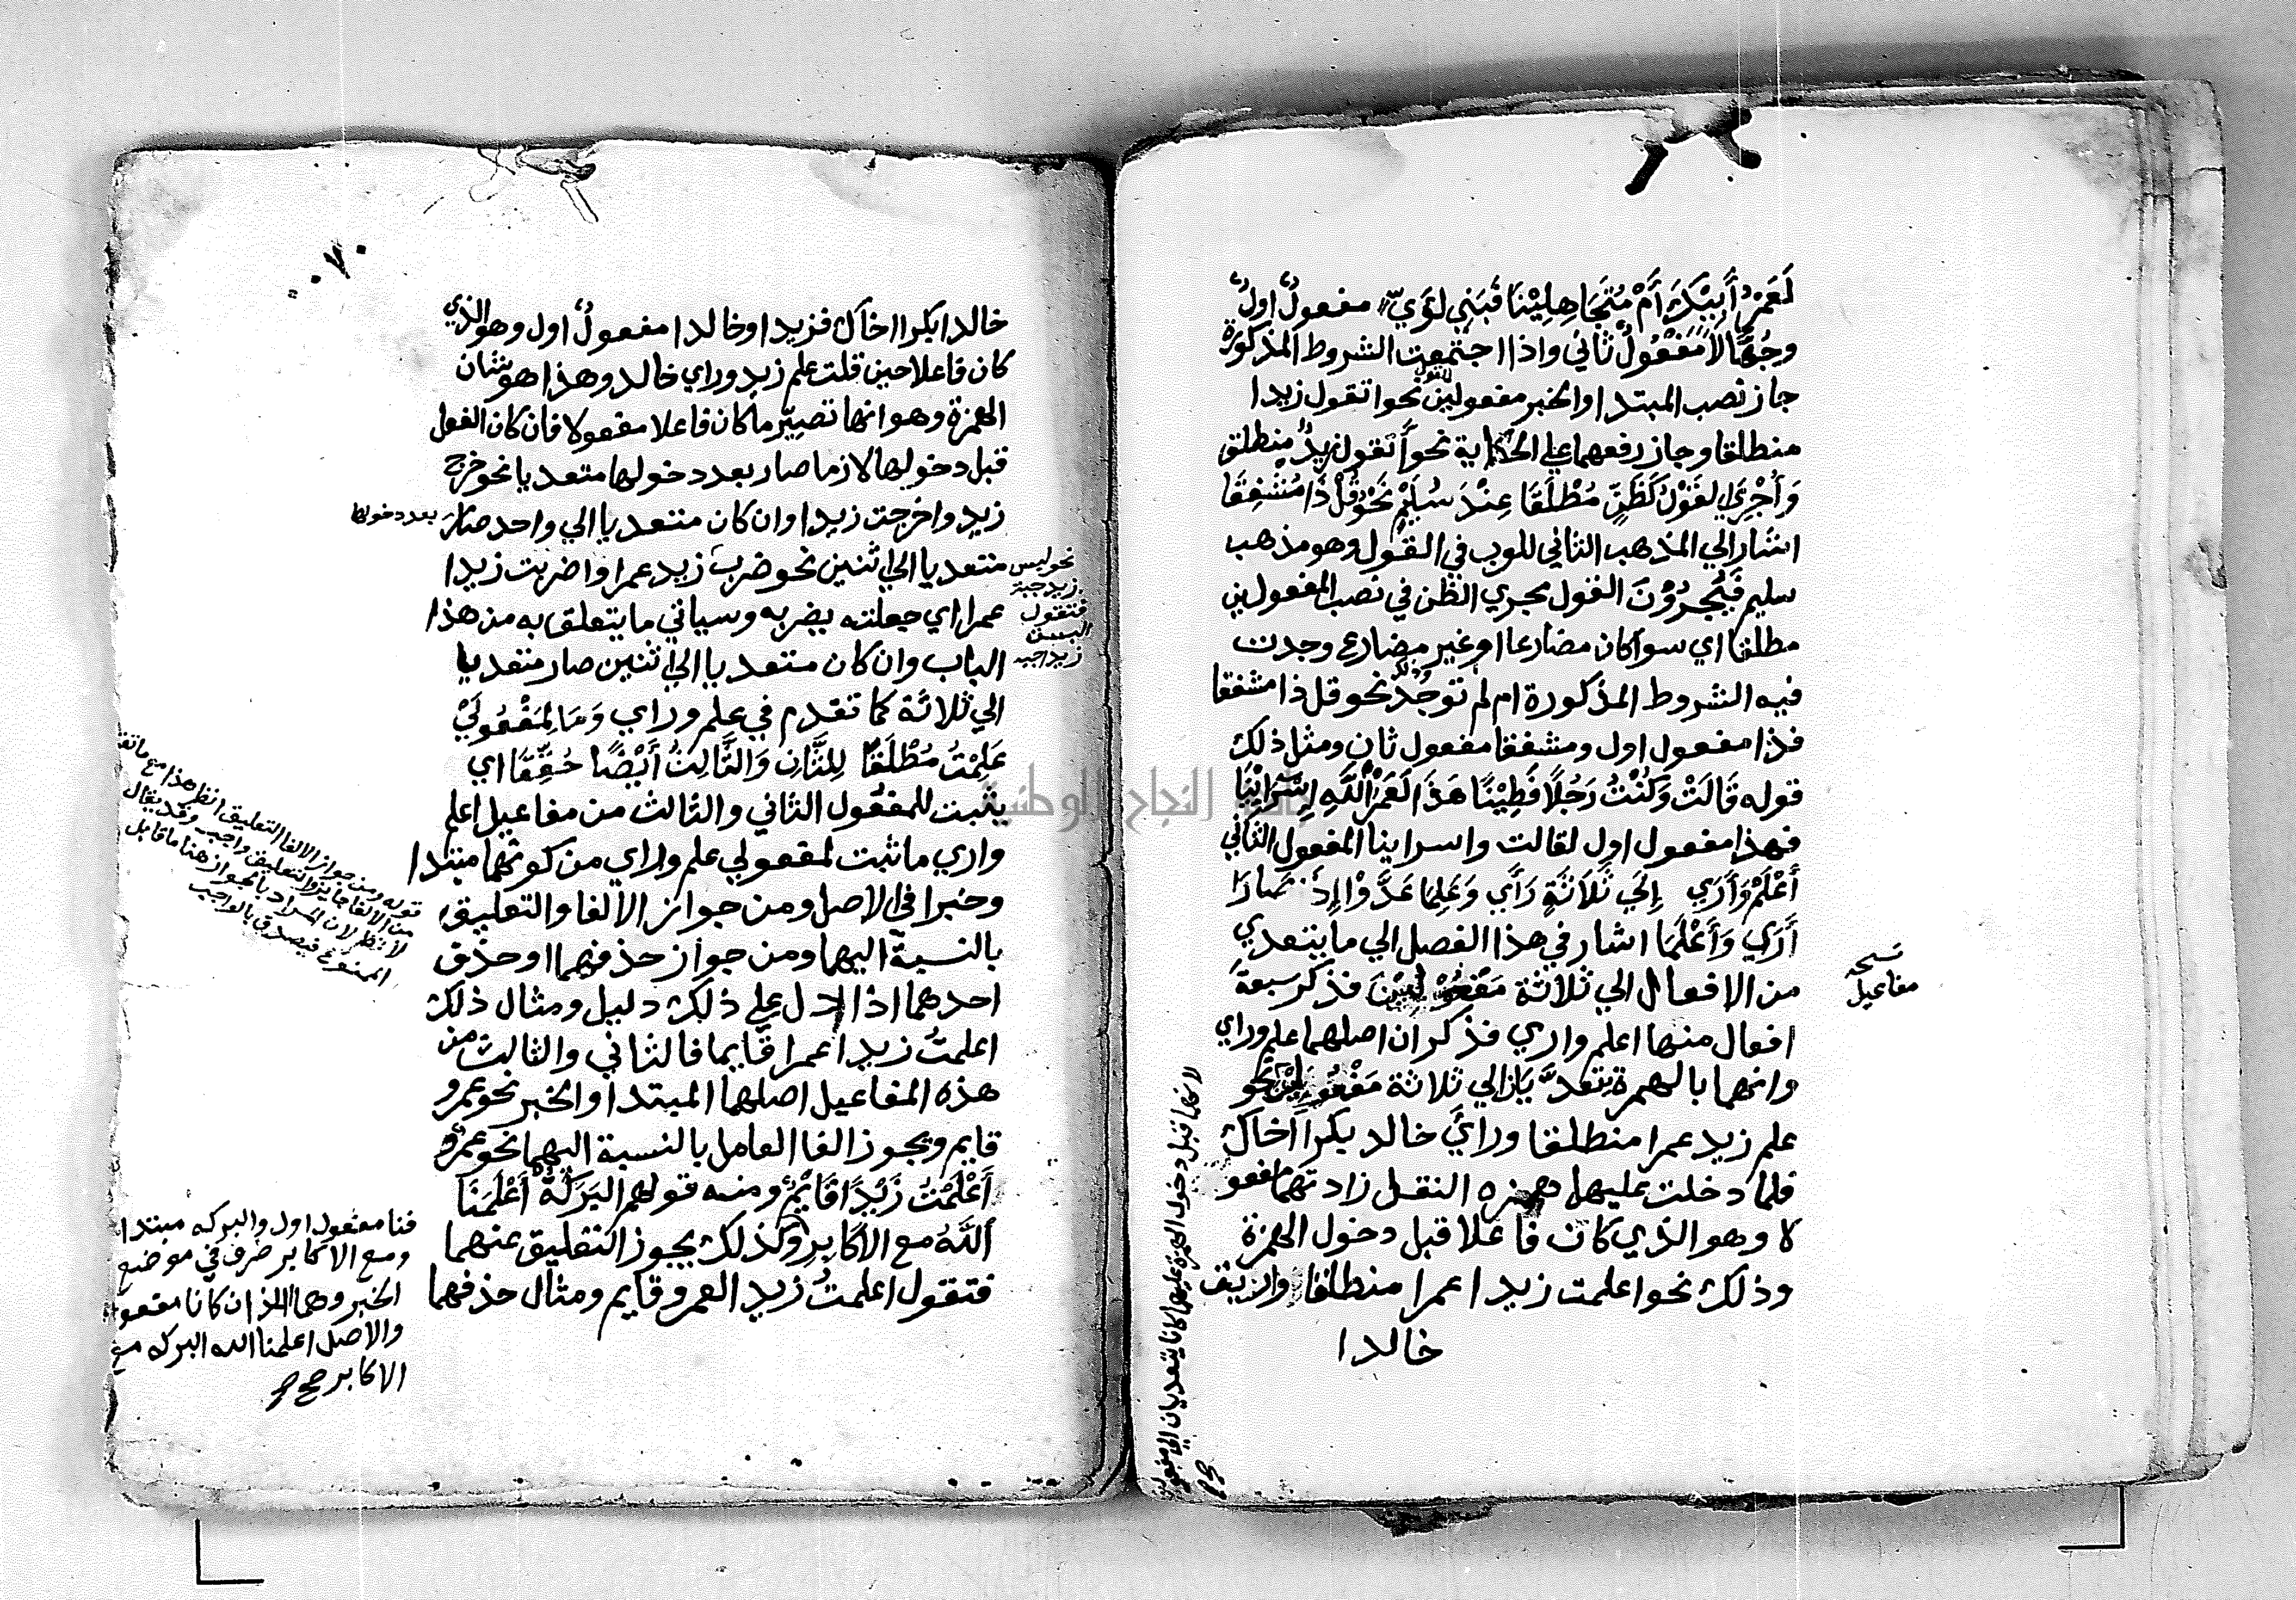 لَعَمْرُ أَبِيْكَ أَمْ مُتَجَاهِلِيْنَا فَبَنِي لُؤَيّ مفعولٌ اولٌ
وجُهَّالاً مَفْعُولٌ ثاني واذا اجتمعت الشروط المذكورة
جاز نصب المبتدا والخبر مفعولين نحو اتقول زيدا
منطلقا وجاز رفعهما علي الحكاية نحو أتقول زيدٌ منطلق
وَأُجْرِيَ القَوْلُ كَظَنٍّ مُطْلَقَا عِنْدَ سُلَيْمٍ نَحْوُ قُلْ ذَا مُشْفِقَا
اشار الي المذهب الثاني للعرب في القول وهو مذهب
سليم فَيُجرُوْنَ القول مجري الظن في نصب المفعولين
مطلقا اي سوا كان مضارعا او غير مضارع وجدت
فيه الشروط المذكورة ام لم توجد نحو قل ذا مشفقا
فذا مفعول اول ومشفقا مفعول ثان ومثل ذلك
قوله قَالَتْ وَكُنْتُ رَجُلًا فَطِيْنًا هَذَا لَعَمْرُ اللَّهِ إِسْرَائِيْنَا
فهذا مفعول اول لقالت واسراينا المفعول الثاني
أَعْلَمَ وَأَرَي إِلَي ثَلَاثَةٍ رَأَي وَعَلِمَا عَدَّوْا إِذَا صَارَا
أَرَي وَأَعْلَمَا اشار في هذا الفصل الي ما يتعدي
من الافعال الي ثلاثة مَفْعُوْلِيْنَ فذكر سبعة
نسخه
مفاعيل
افعال منها اعلم واري فذكر ان اصلهما علم وراي
وانهما بالهمزة يتعدَّيَان الي ثلاثة مَفْعُوْلِيْنَ نحو
علم زيد عمرا منطلقا ورأي خالد بكرا اخاك
فلما دخلت عليهما همزه النقل زادتهما مفعو
لا وهو الذي كان فاعلا قبل دخول الهمزة
وذلك نحو اعلمت زيدا عمرا منطلقا واريت
خالدا
لانهما قبل دخول الهمزة عليهما كانا يتعديان الي مفعولين
صح
٠٧٠
خالدا بكرا اخاك فزيدا وخالدا مفعولٌ اول وهو الذي
كان فاعلا حين قلت علم زيد وراي خالد وهذا هو شان
الهمزة وهو انها تصيّر ما كان فاعلا مفعولا فان كان الفعل
قبل دخولها لازما صار بعد دخولها متعديا نحو خرج
زيد واخرجت زيدا وان كان متعديا الي واحد صار بعد دخولها
متعديا الي اثنين نحو ضرب زيد عمرا واضربت زيدا
عمرا اي جعلته يضربه وسياتي ما يتعلق به من هذا
الباب وان كان متعديا الي اثنين صار متعديا
نحو لبس
زيد جبة
فتقول
البست
زيدا جبه
الي ثلاثة كما تقدم في علم وراي وَمَا لِمَفْعُولَيْ
عَلِمْتُ مُطْلَقًا لِلثَّانِ وَالثَّالِثُ أَيْضًا حُقِّقَا اي
يثبت للمفعول الثاني والثالث من مفاعيل اعلم
واري ما ثبت لمفعولي علم وراي من كونهما مبتدا
وخبرا في الاصل ومن جواز الالغا والتعليق
بالنسبة اليهما ومن جواز حذفهما او حذف
احدهما اذا دل علي ذلك دليل ومثال ذلك
اعلمتُ زيدا عمرا قايما فالثاني والثالث من
هذه المفاعيل اصلهما المبتدا والخبر نحو عمرو
قايم ويجوز الغا العامل بالنسبة اليهما نحو عمرو
أَعْلَمْتُ زَيْدًا قَايْمٌ ومنه قولهم البَرَكَةُ أَعْلَمَنَا
اللَّهُ مع الاكابِرِ وكذلك يجوز التعليق عنهما
فتقول اعلمتُ زيدا لعمرو قايم ومثال حذفهما
قوله ومن جواز الالغا التعليق انظر هذا مع ما
من الالغا جايز والتعليق واجب وقد يقال
لا نظر لان المراد بالجواز هنا ما قابل
الممنوع فيصدق بالواجب
فنا مفعول اول والبركه مبتدا
ومع الاكابر ظرف في موضع
الخبر وهما اللذان كانا مفعو
والاصل اعلمنا الله البركه مع
الاكابر صح
جامعة النجاح الوطنية